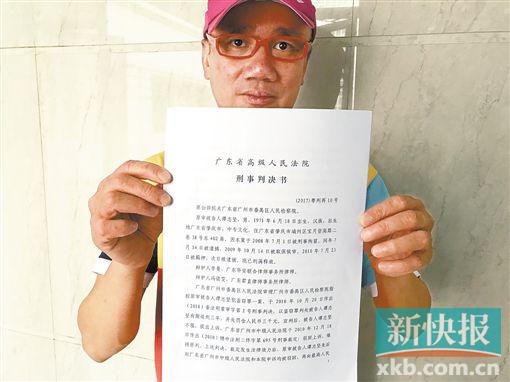 广东省高级人民法院
刑事判决书
(2017)粤刑再10号
原公诉机关广东省广州市番禺区人民检察院。
原审被告人谭志坚,男,1971年6月18日出生,汉族,出生
地广东省肇庆市,中专文化,住广东省肇庆市端州区宝月
38号东402房。因本案于2008年7月1日被刑事拘留,同年7
月14日被逮捕,2009年10月14日被取保候审,2010年7月23
日被羁押,次日被逮捕,现已刑满释放。
辩护人,广东华安联合律师事务所律师。
辩护人,律师事务所律师。
广东省广州市番禺区人民法院审理广州市番禺区人民检察院指
控原审被告人谭志坚犯盗窃罪一案,于2010年10月20日作出
刑事判决,以盗窃罪判处被告人谭志
坚有期徒刑三年,并处罚金人民币三千元。宣判后,被告人谭志坚不
服,提出上诉。广东省广州市中级人民法院于2010年12月18
日作出(2010)穗中法刑二终字第695号刑事裁定,驳回上诉,维
持原判。上述判决、裁定发生法律效力后,原审被告人谭志坚先后
向广东省广州市中级人民法院和本院申诉均被驳回,
1
新快报
xkb.com.cn